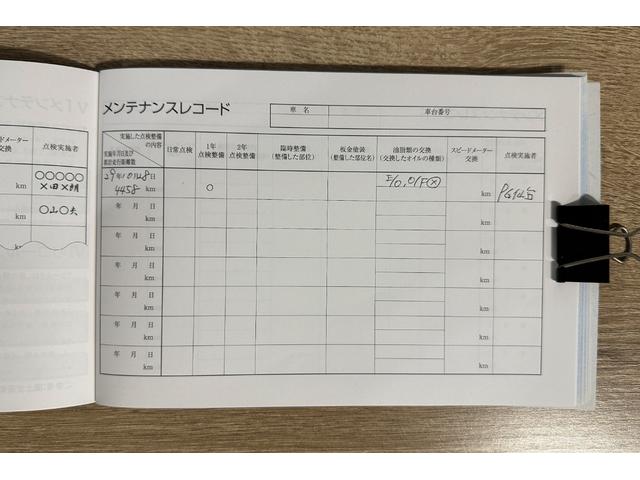 メンテナンスレコード
車 名
車台番号
実施した点検整備の内容
実施年月日及び累計走行距離数
日常点検
1年点検整備
2年点検整備
臨時整備（整備した部位）
板金塗装（整備した部位名）
油脂類の交換（交換したオイルの種類）
スピードメーター交換
点検実施者
29年10月28日
4458 km
○
E/O, O/F
km
年 月 日
km
km
年 月 日
km
km
年 月 日
km
km
年 月 日
km
km
年 月 日
km
km
年 月 日
km
km
ドメーター
交換
点検実施者
km
○○○○○
×田×朗
km
○山○夫